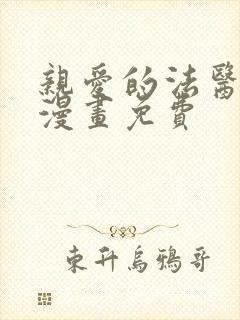 親愛的法醫
漫畫免費
東升烏鴉哥